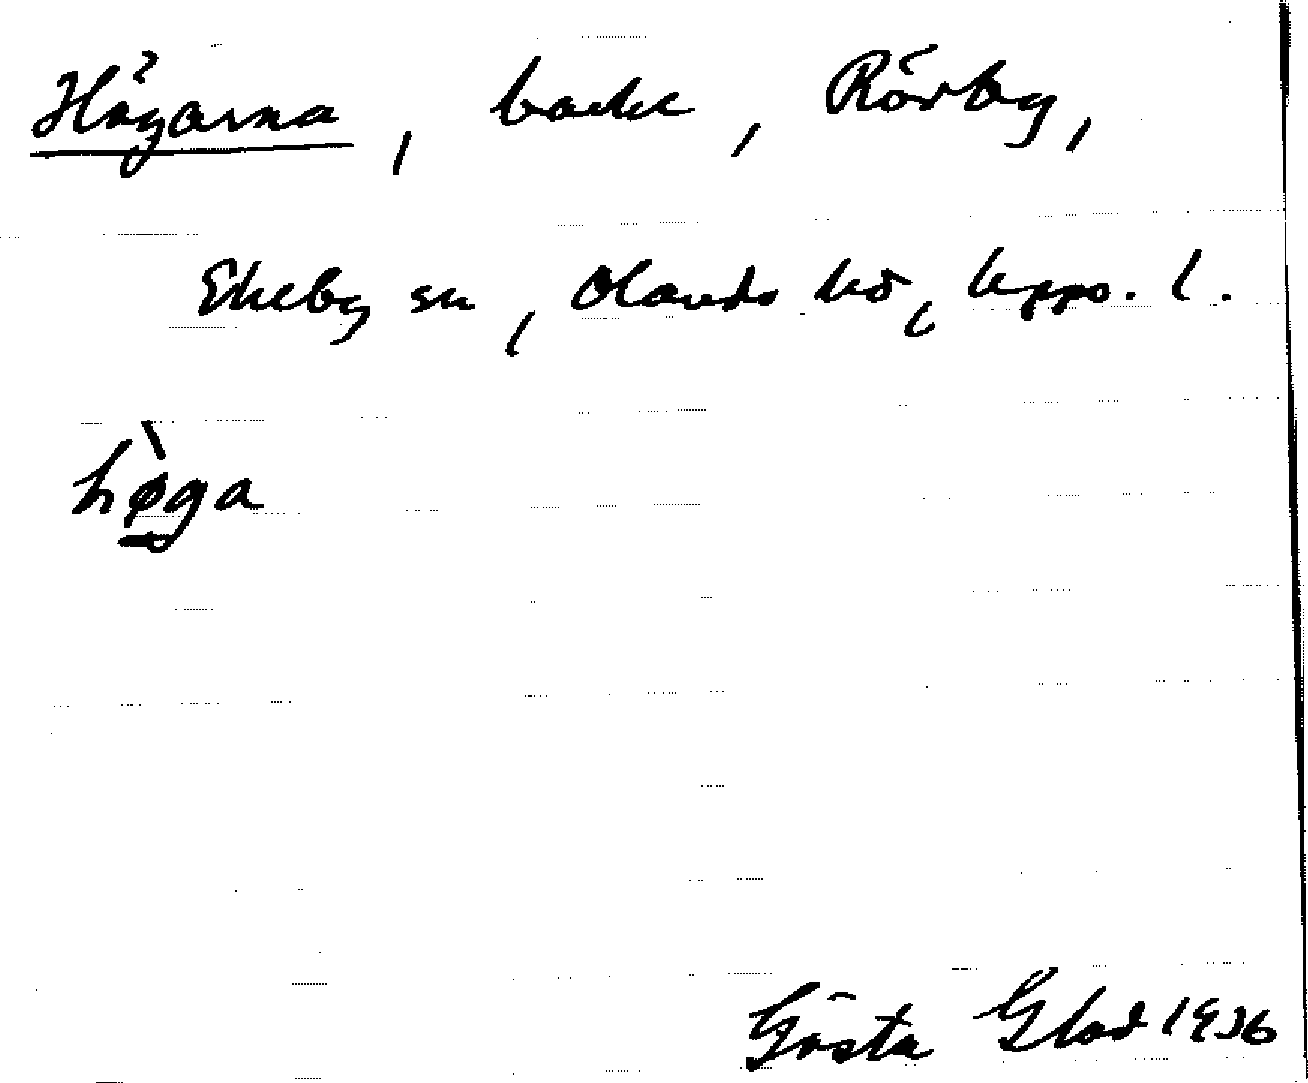 Högarna, backe, Rörby,
Ekeby sn, Olands hd, Upps. l.
hø̀ga
Gösta Glad 1936